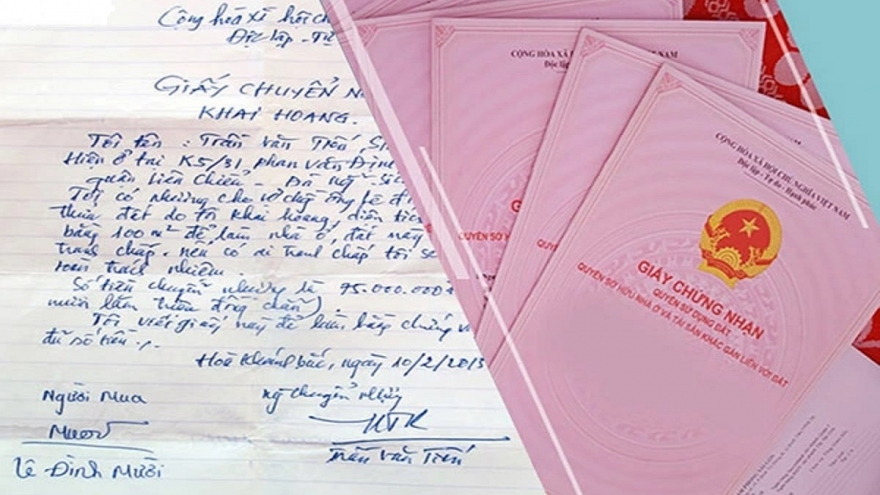 Cộng hòa xã hội ch
Độc lập - Tự
GIẤY CHUYỂN N
KHAI HOANG.
Tôi tên: Trần Văn Tiến
Hiện ở tại K5/31, phan Văn Định
quận Liên Chiểu -
Tôi có nhường cho vợ chồng ông lê đ
thửa đất do tôi khai hoang, diện tích
bằng 100 m² để làm nhà ở, đất này
tranh chấp. nếu có di tranh chấp tôi
toàn trách nhiệm.
Số tiền chuyển nhường là 75.000.000
mươi lăm triệu đồng chẵn)
Tôi viết giấy này để làm bằng chứng v
đủ số tiền
Hoà Khánh bắc, ngày 10/2/2013
Người Mua
ng chuyển nhượng
Mười
Lê Đình Mười
Trần Văn Tiến
CỘNG HÒA XÃ
NAM
Độc lập
GIẤY
QUYỀN SỞ
QUYỀN
CỘNG HÒA XÃ HỘI CHỦ NGHĨA VIỆT NAM
Độc lập - Tự do - Hạnh phúc
GIẤY CHỨNG NHẬN
QUYỀN SỬ DỤNG ĐẤT
QUYỀN SỞ HỮU NHÀ Ở VÀ TÀI SẢN KHÁC GẮN LIỀN VỚI ĐẤT